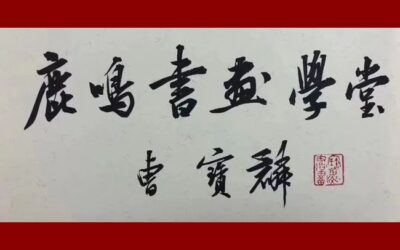 鹿鳴書畫學堂
曹寶麟